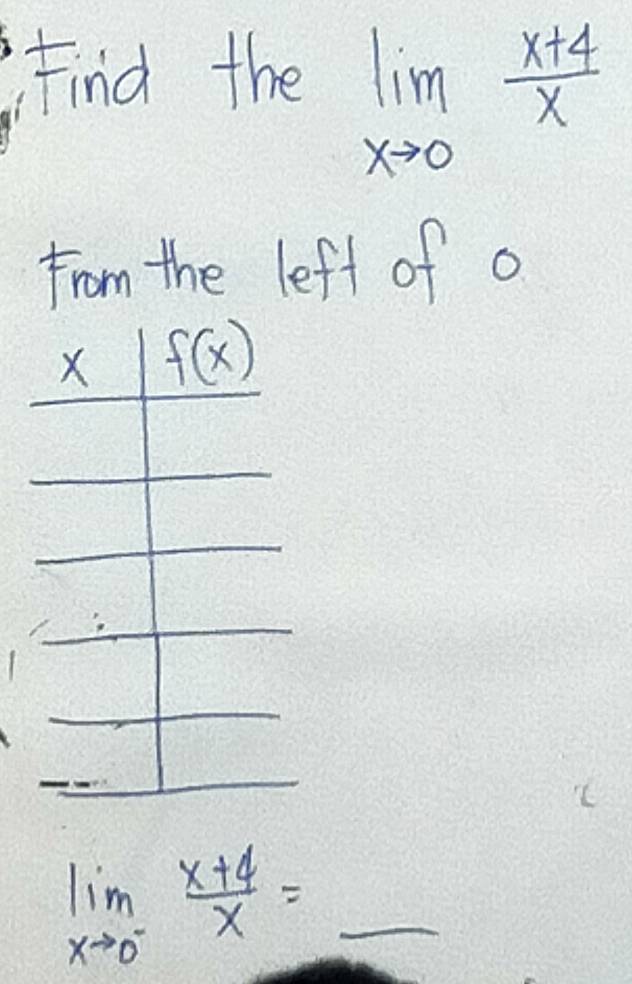 Find the lim x+4/x
x→0
From the left of 0
x f(x)
lim x+4/x = __
x→0⁻